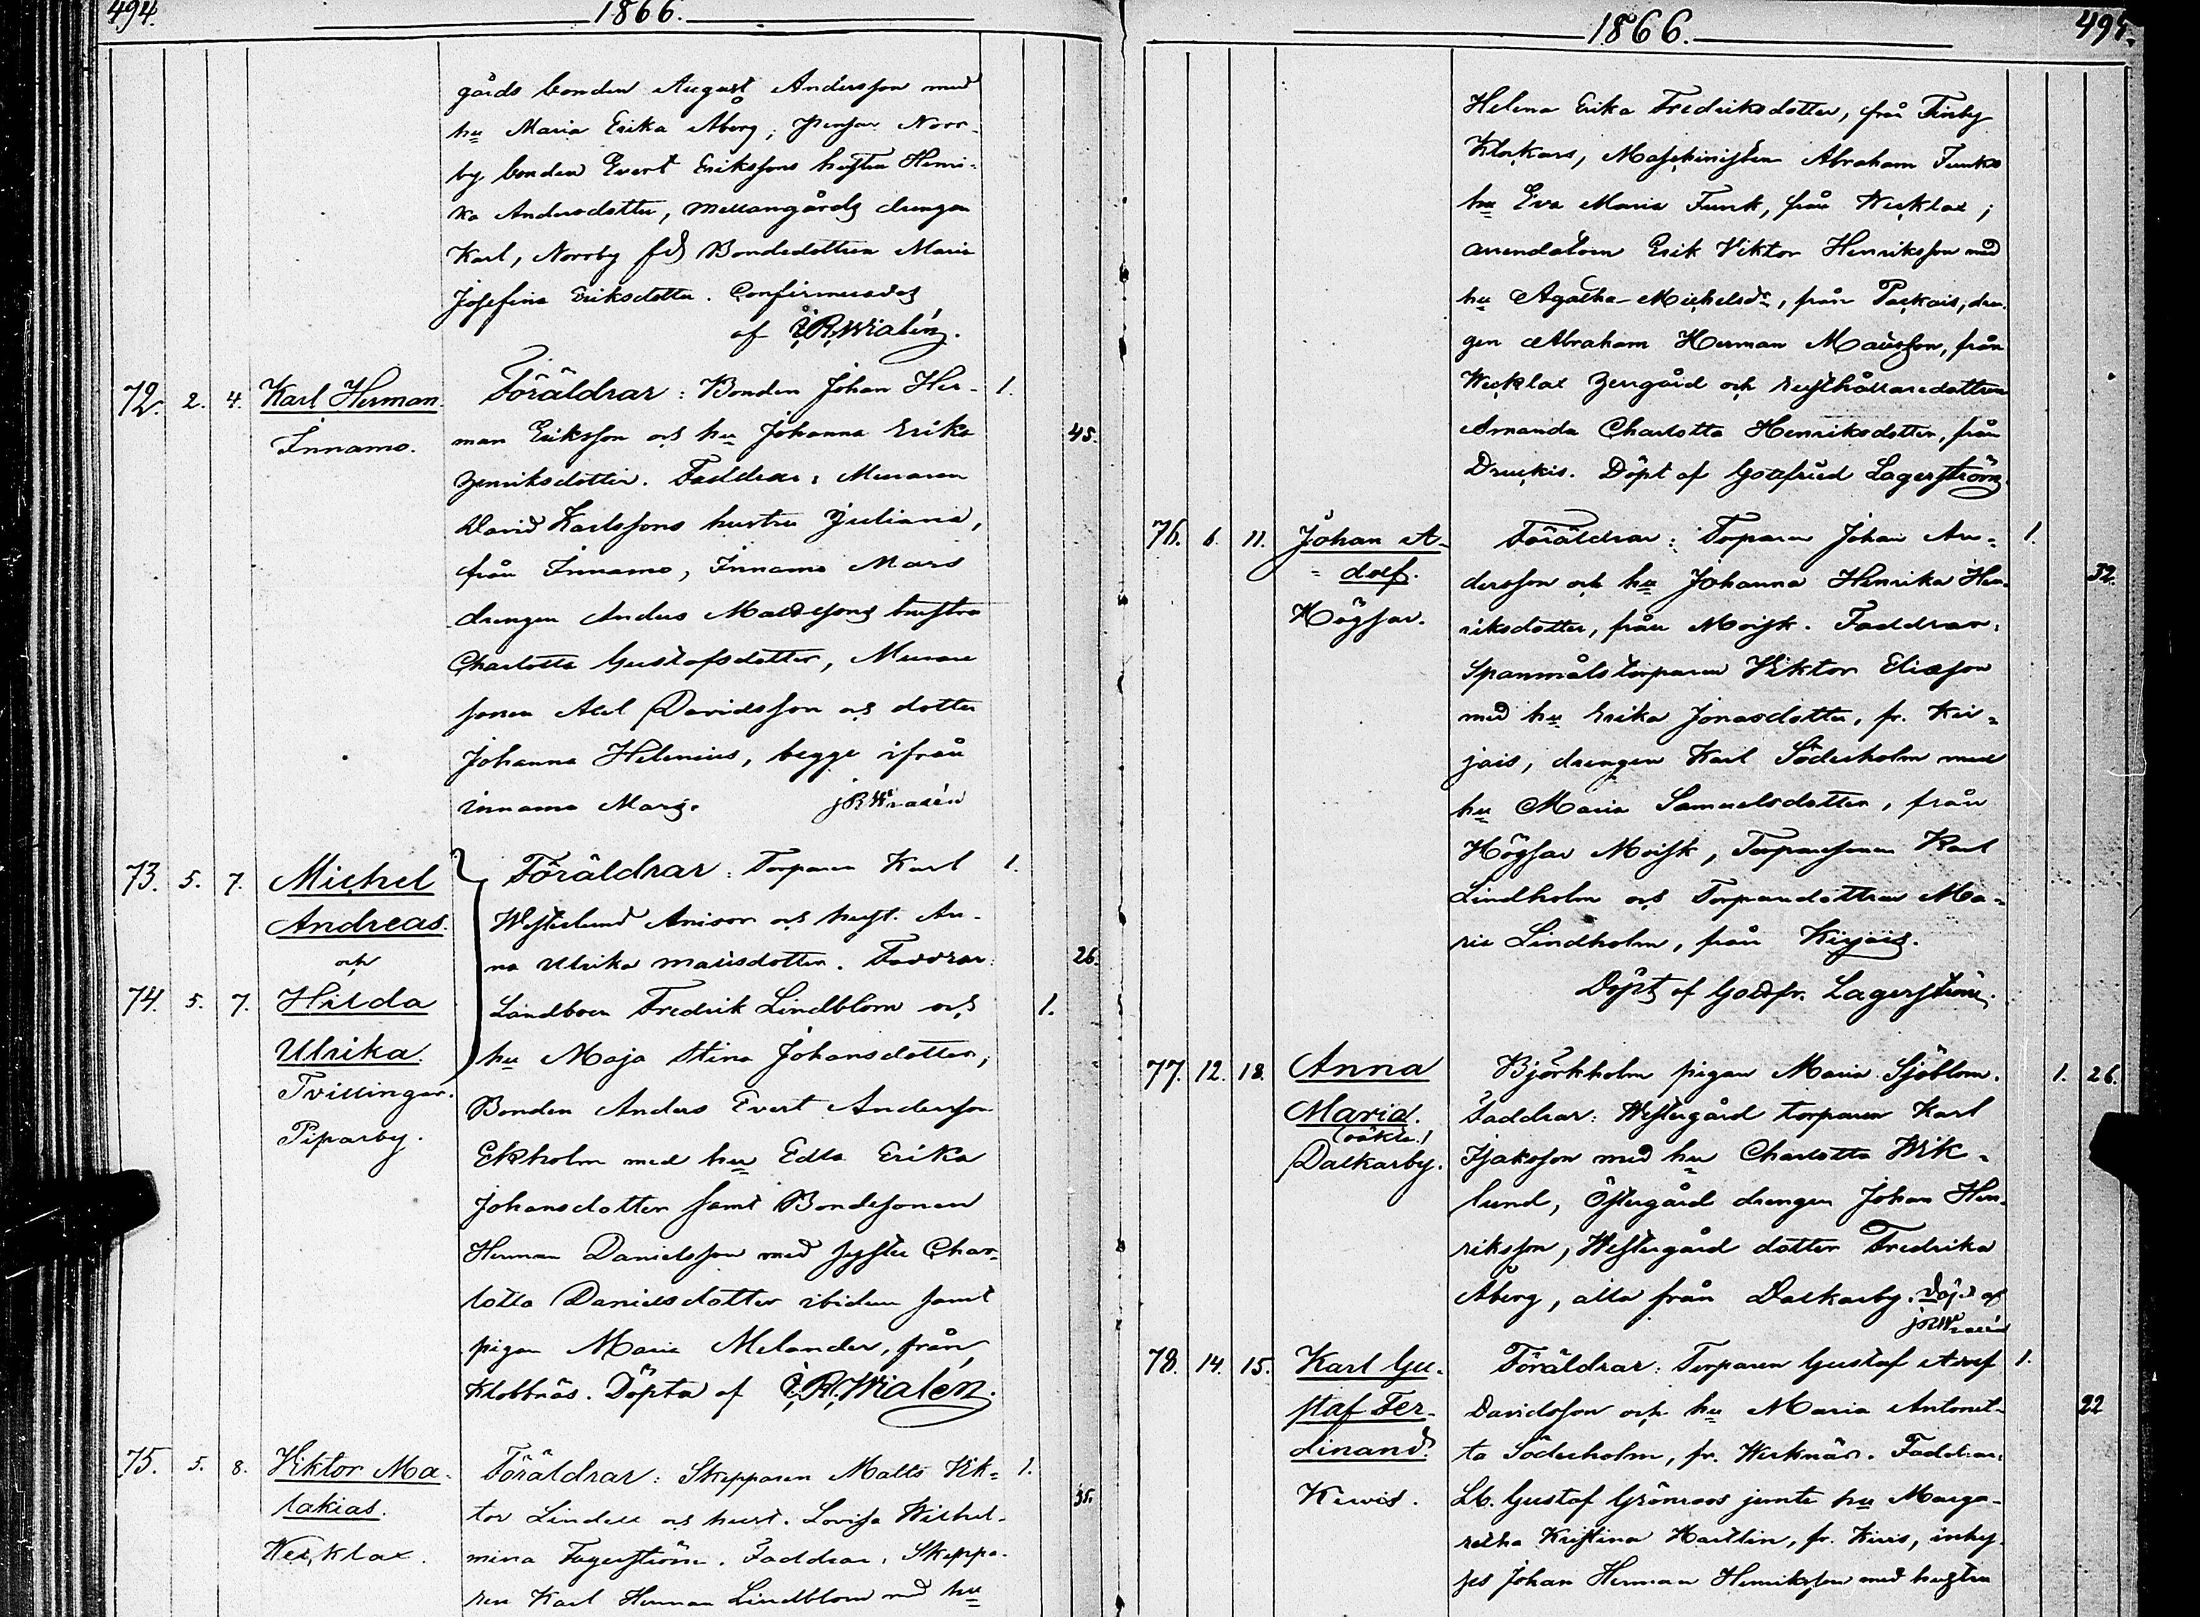 494.
1866.
gårds bonden August Andersson med
hu Maria Erika Åberg, Norr-
by bonden Evert Erikssons hustru Henri-
ka Andersdotter, Mellangårds drengen
Karl, Norrby fd Bondedottren Maria
Josefina Eriksdotter. Confirmerades
af J.R. Wialén.
72. 2. 4. Karl Herman. Föräldrar: Bonden Johan Her- 1.
Innamo. man Eriksson och hu Johanna Erika 45.
Henriksdotter. Faddrar: Muraren
David Karlssons hustru Juliana,
från Innamo, Innamo Mars
drengen Anders Mattssons hustru
Charlotta Gustafsdotter, Murare
sonen Axel Davidsson och dotter
Johanna Helenius, begge ifrån
Innamo Mars. J R Wialén
73. 5. 7. Michel Föräldrar: Torparen Karl 1.
Andreas. Westerlund Anisor och hust. An-
och na Ulrika Matsdotter. Faddrar: 26.
74. 5. 7. Hilda Landboen Fredrik Lindblom och 1.
Ulrika. hu Maja Stina Johansdotter,
Tvillingar. Bonden Anders Evert Andersson
Piparby. Ekholm med hu Edla Erika
Johansdotter samt Bondesonen
Herman Danielsson med syster Char-
lotta Danielsdotter ibidem samt
pigan Maria Melander, från
Klobbnäs. Döpta af J.R. Wialén.
75. 5. 8. Viktor Ma- Föräldrar: Skepparen Matts Vik- 1.
lakias. tor Lindell och hust. Lovisa Wilhel- 35.
Werklax. mina Fagerström. Faddrar: Skeppa-
ren Karl Herman Lindblom med hu
1866.
495.
Helena Erika Fredriksdotter, från Finby
Klockars, Maschinisten Abraham Funks
hu Eva Maria Funk, från Werklax;
arrendatorn Erik Viktor Henriksson med
hu Agatha Michelsdr, från Parkais, dren-
gen Abraham Herman Matsson, från
Werklax och rusthållaredottren
Amanda Charlotta Henriksdotter, från
Druckis. Döpt af Gottfried Lagerström.
76. 6. 11. Johan A- Föräldrar: Torparen Johan An- 1.
dolf. dersson och hu Johanna Henrika Hen- 32.
Högsar. riksdotter, från Moisk. Faddrar:
Spanmålstorparen Viktor Eliasson
med hu Erika Jonasdotter, fr. Kir-
jais, drengen Karl Söderholm med
hu Maria Samuelsdotter, från
Högsar Moisk, Torparesonen Karl
Lindholm och Torparedottren Ma-
ria Lindholm, från Kirjais.
Döpt af Gottfr. Lagerström.
77. 12. 18. Anna Björkholm pigan Maria Sjöblom. 1. 26.
Maria. Faddrar: Westergård torparen Karl
(oäkta)
Dalkarby. Isaksson med hu Charlotta Wik-
lund, Östergård drengen Johan Hen-
riksson, Westergård dotter Fredrika
Åberg, alla från Dalkarby. Döpt af
J R Wialén
78. 14. 15. Karl Gu- Föräldrar: Torparen Gustaf Adolf 1.
staf Fer- Davidsson och hu Maria Antonet- 22
dinand. ta Söderholm, fr. Werknäs. Faddrar:
Lb. Gustaf Grönroos jemte hu Marga-
retha Kristina Hartlin, fr. Kivis, inhy-
ses Johan Herman Henriksson med hustru